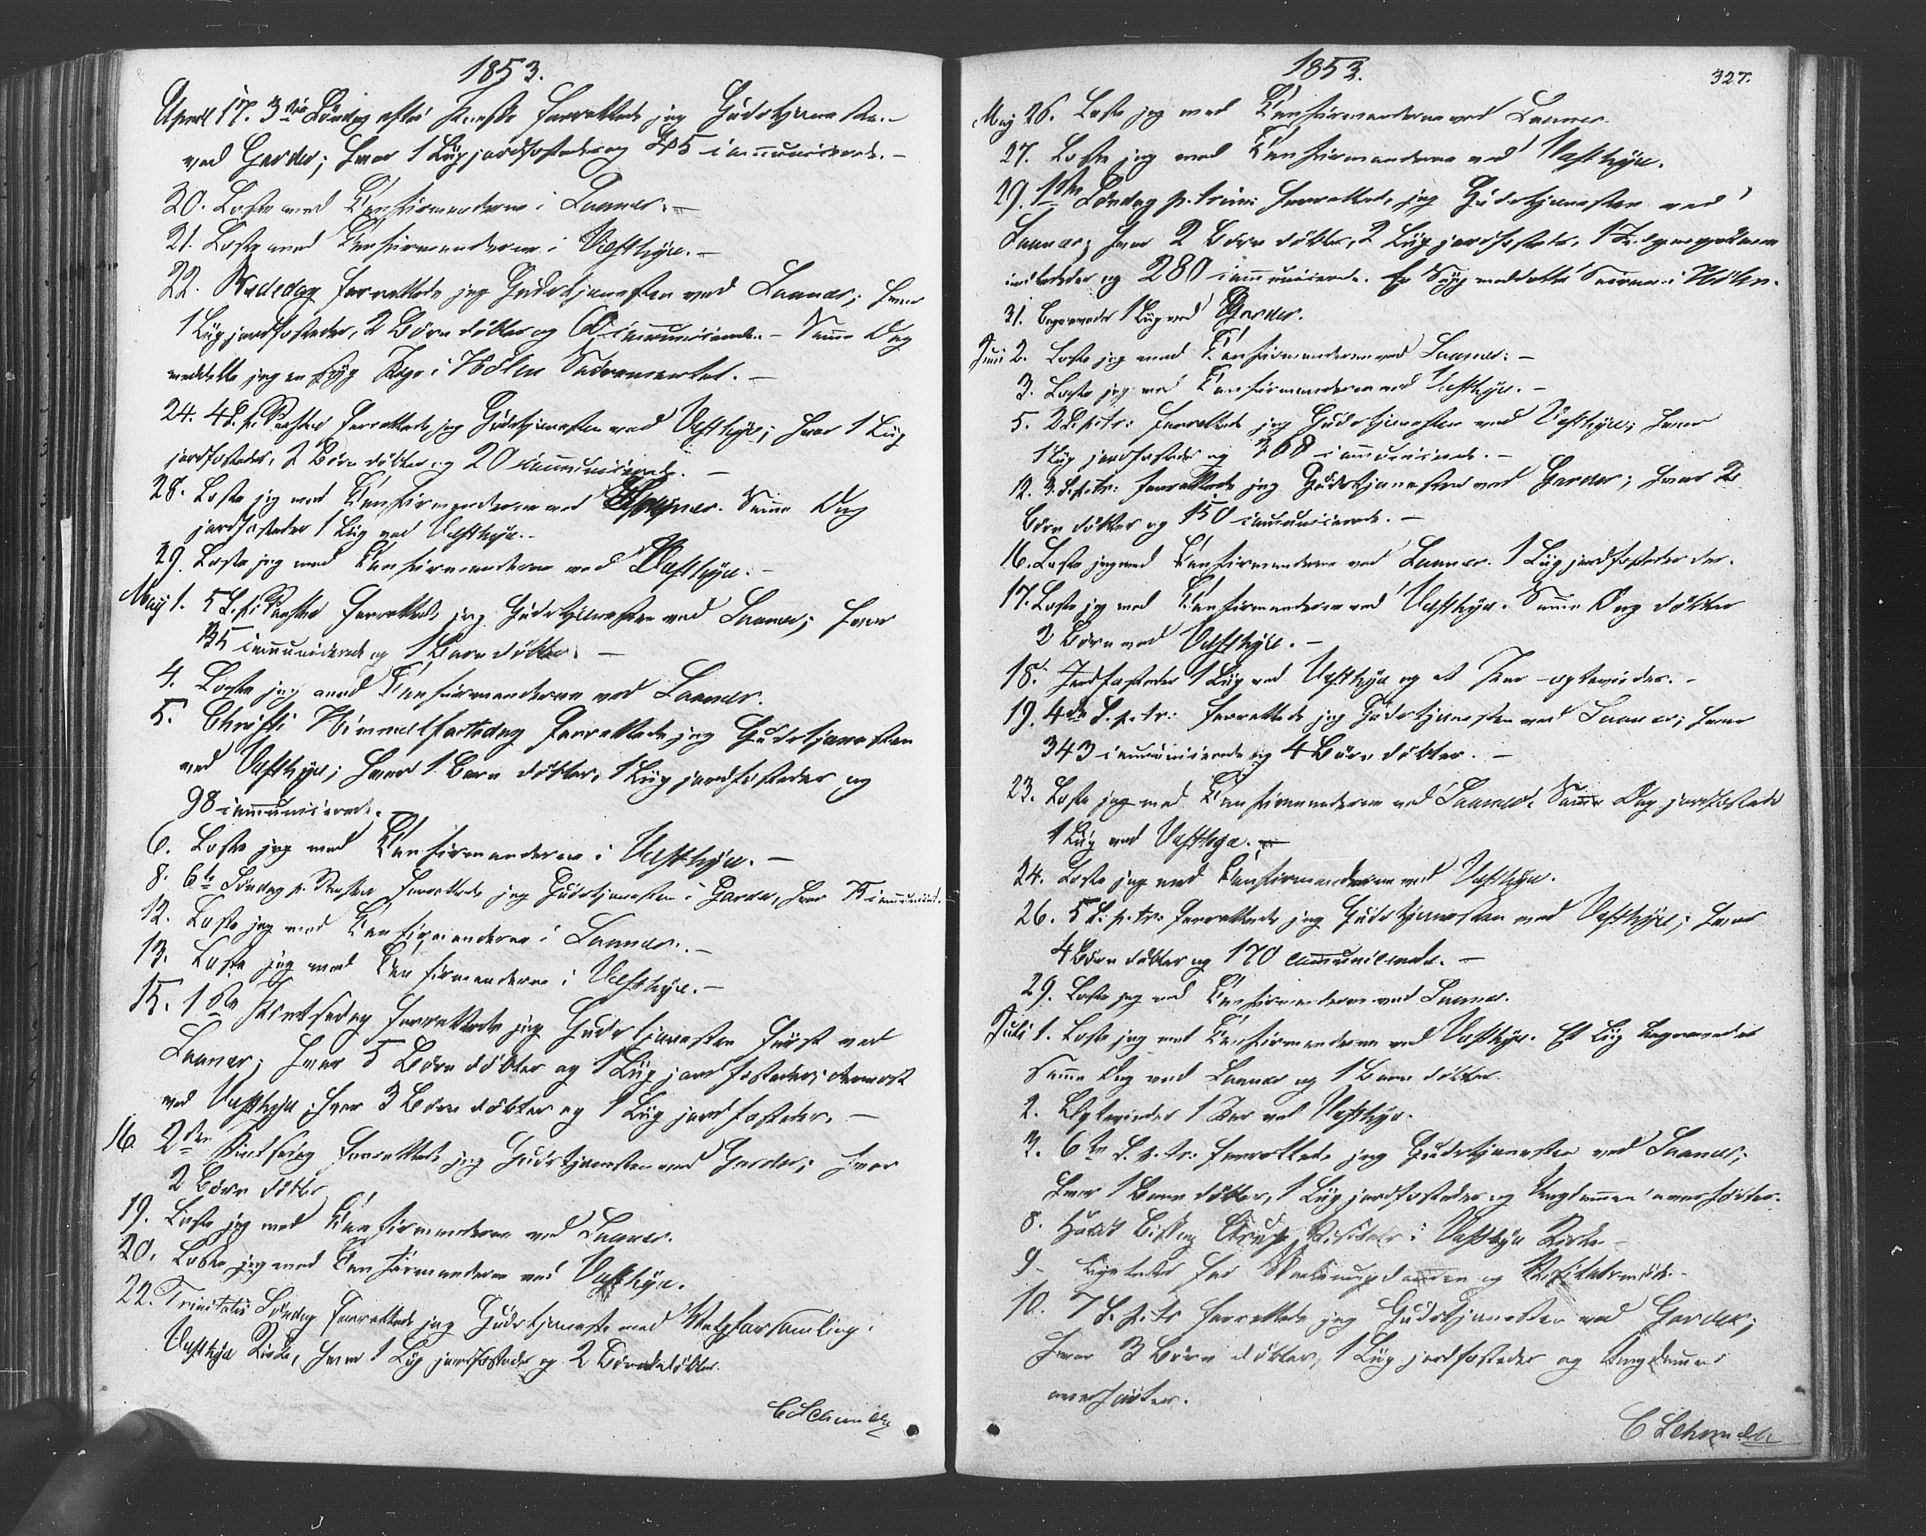 1853.
April 17. 3die Søndag efter Paaske forrettede jeg Gudstjenesten
ved Garder; hvor 1 Liig jordfæstedes og 245 communicerede. –
20. Læste med Confirmanderne i Saaner. –
21. Læste med Confirmanderne i Vestbye. –
22. Bededag forrettede jeg Gudstjenesten ved Saaner; hvor
1 Liig jordfæstedes, 2 Børn døbtes og 60 communicerede. – Samme Dag
meddelte jeg en syg i Hølen Sacramentet. –
24. 4 S. p. Paaske forrettede jeg Gudstjenesten ved Vestbye; hvor 1 Liig
jordfæstedes, 2 Børn døbtes og 20 communicerede. –
28. Læste jeg med Confirmanderne ved Saaner. Samme Dag
jordfæstedes 1 Liig ved Vestbye. –
29. Læste jeg med Confirmanderne ved Vestbye. –
May 1. 5 S. p. Paaske forrettede jeg Gudstjenesten ved Saaner; hvor
communicerede og 1 Barn døbtes. –
4. Læste jeg med Confirmanderne ved Saaner.
5. Christi Himmelfartsdag forrettede jeg Gudstjenesten
ved Vestbye; hvor 1 Barn døbtes, 1 Liig jordfæstedes og
98 communicerede.
6. Læste jeg med Confirmanderne i Vestbye. –
8. 6te Søndag p. Paaske forrettede jeg Gudstjenesten i Garder, hvor 75 communicered.
12. Læste jeg med Confirmanderne i Saaner. –
13. Læste jeg med Confirmanderne i Vestbye. –
15. 1ste Pintsedag forrettede jeg Gudstjenesten først ved
Saaner; hvor 5 Børn døbtes og 1 Liig jordfæstedes; dernæst
ved Vestbye, hvor 3 Børn døbtes og 1 Liig jordfæstedes. –
16. 2den Pintsedag forrettede jeg Gudstjenesten ved Garder; hvor
2 Børn døbtes
19. Læste jeg med Confirmanderne ved Saaner.
20. Læste jeg med Confirmanderne ved Vestbye.
22. Trinitatis Søndag forrettede jeg Gudstjeneste med Valgforsamling i
Vestbye Kirke, hvor 1 Liig jordfæstedes og 2 Børn døbtes.
C Schmidt
1853.
327.
May 26. Læste jeg med Confirmanderne ved Saaner.
27. Læste jeg med Confirmanderne ved Vestbye.
29. 1ste Søndag p. trin: forrettede jeg Gudstjenesten ved
Saaner; hvor 2 Børn døbtes, 2 Liig jordfæstedes, 1
og 280 communicerede. En Syg meddelte i Hølen.
31. Begravedes 1 Liig ved Garder.
Juni 2. Læste jeg med Confirmanderne ved Saaner. –
3. Læste jeg med Confirmanderne ved Vestbye. –
5. 2 S. p. tr: forrettede jeg Gudstjenesten ved Vestbye; hvor
1 Liig jordfæstedes og 268 communicerede. –
12. 3. S. p. tr: forrettede jeg Gudstjenesten ved Garder; hvor 2
Børn døbtes og 150 communicerede. –
16. Læste jeg med Confirmanderne ved Saaner. 1 Liig jordfæstedes der.
17. Læste jeg med Confirmanderne ved Vestbye. Samme Dag døbtes
2 Børn ved Vestbye. –
18. Jordfæstedes 1 Liig ved Vestbye og et Par copuleredes. –
19. 4de S. p. tr: forrettede jeg Gudstjenesten ved Saaner; hvor
343 communicerede og 4 Børn døbtes. –
23. Læste jeg med Confirmanderne ved Saaner. Samme Dag jordfæstedes
1 Liig ved Vestbye. –
24. Læste jeg med Confirmanderne ved Vestbye.
26. 5 S. p. tr: forrettede jeg Gudstjenesten ved Vestbye; hvor
4 Børn døbtes og 170 communicerede. –
29. Læste jeg med Confirmanderne ved Saaner.
Juli 1. Læste jeg med Confirmanderne ved Vestbye. Et Liig begravedes
Samme Dag ved Saaner og 1 Barn døbtes.
2. Copuleredes 1 Par ved Vestbye.
3. 6te S. p. tr: forrettede jeg Gudstjenesten ved Saaner;
hvor 1 Barn døbtes, 1 Liig jordfæstedes og Ungdommen overhørtes.
8. Holdt Biskop Arup Visitats i Vestbye Kirke –
9.
10. 7 S. p. tr forrettede jeg Gudstjenesten ved Garder;
hvor 3 Børn døbtes, 1 Liig jordfæstedes og Ungdommen
overhørtes.
C Schmidt